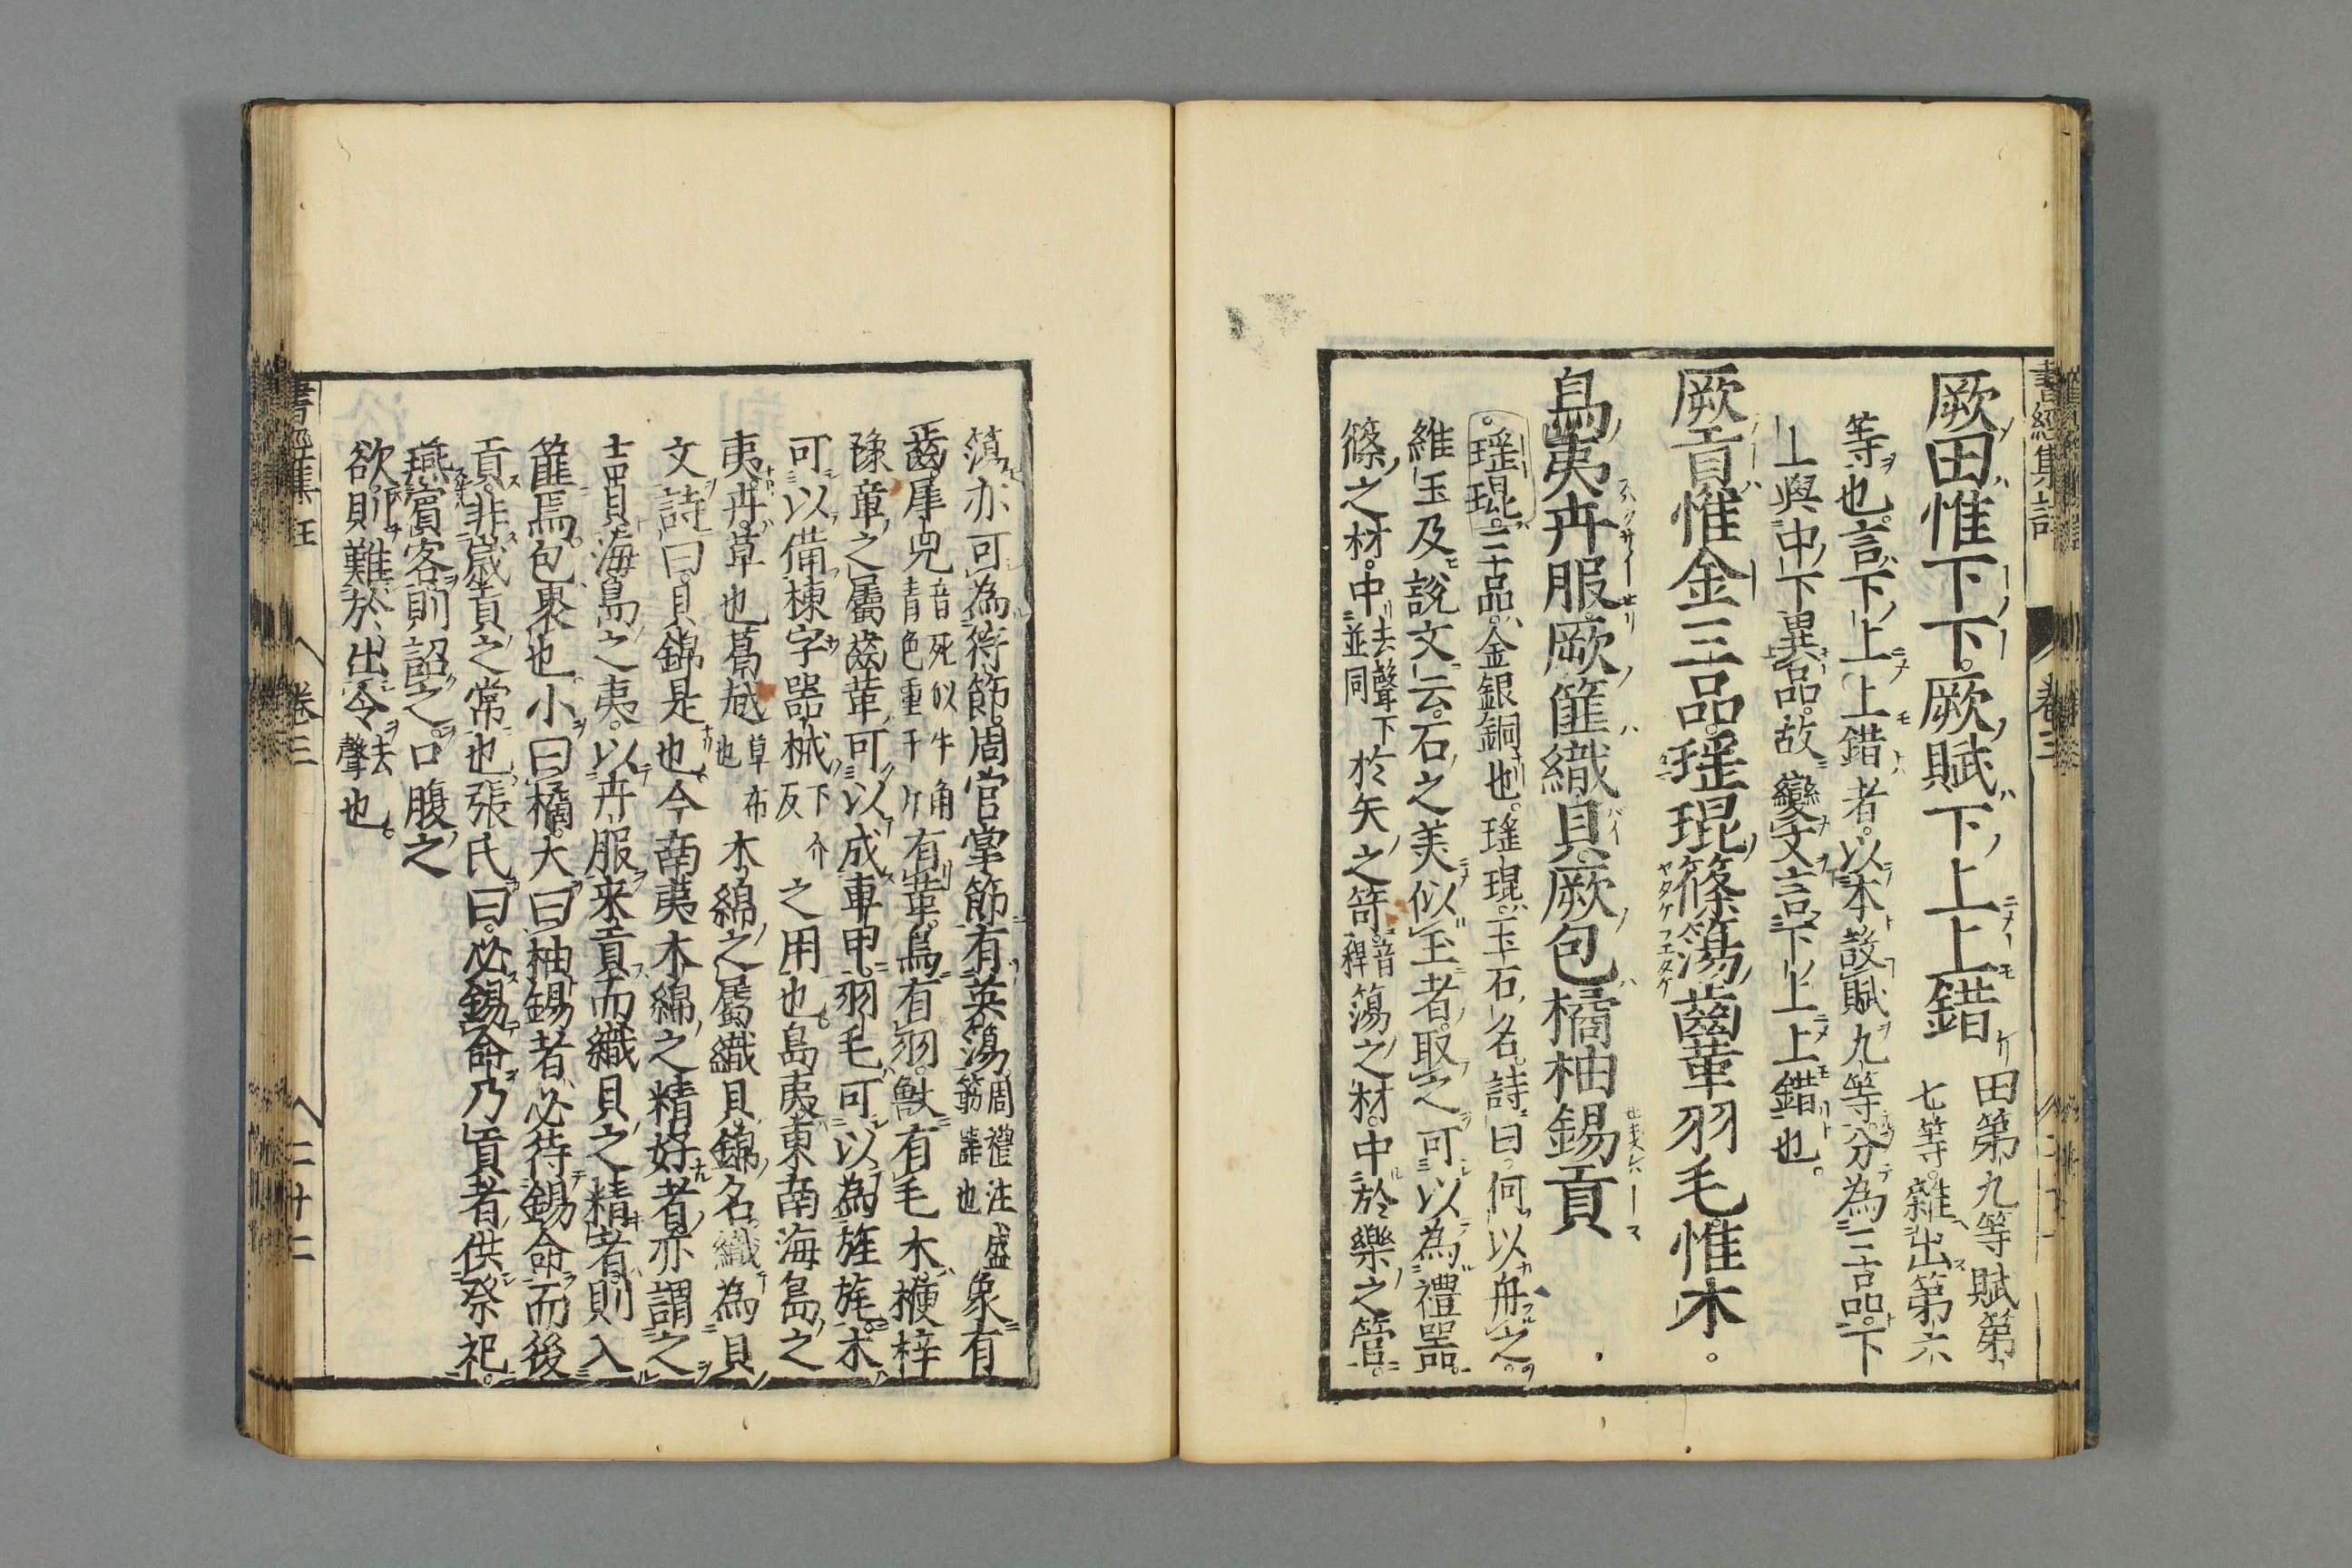 厥田惟下下。厥賦下上上錯
田第九等賦第
七等。雜出第六
等也。言下上上錯者。以本設賦九等。分為三品。下
上與中下異品。故變文言下上上錯也。
厥貢惟金三品。瑤琨篠簜齒革羽毛惟木。
島夷卉服。厥篚織貝。厥包橘柚錫貢
瑤琨。三品。金銀銅也。瑤琨玉石名。詩曰。何以舟之。
維玉及瑤。說文云。石之美似玉者。取之可以為禮器。
篠之材。中去聲下並同於矢之笴。音稈簜之材。中於樂之管。
簜亦可為符節。周官掌節有英簜周禮注盛節簕也象有
齒。犀兕音死似牛角青色重千斤有革。鳥有羽。獸有毛木楩梓
豫章之屬齒革可以成車甲。羽毛可以為旌旄。木
可以備棟宇器械下介反之用也。島夷東南海島之
夷。卉。草也葛越草布也木綿之屬織貝錦名織為貝
文詩曰。貝錦是也今南夷木綿之精好者亦謂之
吉貝海島之夷。以卉服来貢而織貝之精者則入
篚焉。包裹也。小曰橘。大曰柚錫者必待錫命而後
貢。非歲貢之常也。張氏曰。必錫命乃貢者供祭祀。
燕賓客則詔之。口腹之
欲。則難於出令去聲也。
書經集註
卷三
二十二
書經集註
卷三